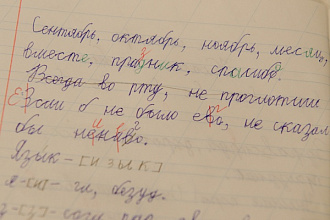 Сентябрь, октябрь, ноябрь, месяц,
вместе, празник, спасибо.
Всегда во рту, не проглотиш
Если б не было ево, не сказал
бы ничиво.
Язык - [ИЗЫК]
я-[и] - гл, безуд.
з-[з]- согл